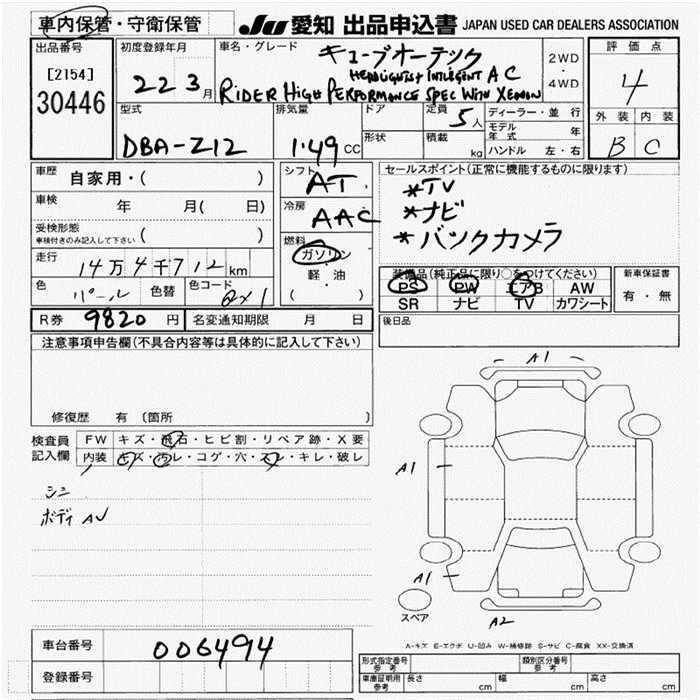 車内保管・守衛保管 JU 愛知 出品申込書 JAPAN USED CAR DEALERS ASSOCIATION
出品番号 初度登録年月 車名・グレード キューブオーテック 2WD・4WD 評価点
[2154] HEADLIGHTS+ INTLIGENT A C
30446 22 3月 RIDER HIGH PERFORMANCE SPEC WITH XENON 4
型式 排気量 ドア 定員 5人 ディーラー・並行 外装 内装
DBA-Z12 1.49 CC 形状 積載 kg モデル年式 年 B C
ハンドル 左・右
車歴 自家用・( ) シフト AT セールスポイント(正常に機能するものに限ります)
車検 年 月( 日) 冷房 AAC *TV
受検形態 ( ) *ナビ
車検付きのみ記入して下さい 燃料 *バックカメラ
走行 14万4千712km ガソリン
色 パール 色替 色コード QX1 軽・油
( ) 装備品(純正品に限り○をつけてください) 新車保証書
PS PW エアB AW 有・無
SR ナビ TV カワシート
R券 9820円 名変通知期限 月 日 後日品
注意事項申告欄(不具合内容等は具体的に記入して下さい)
修復歴 有 〔箇所
検査員 FW キズ・飛石・ヒビ割・リペア跡・X要
記入欄 内装 キズ・汚レ・コゲ・穴・スレ・キレ・破レ
シミ
ボディ AU
A1
A1
A1
スペア
A2
A-キズ E-エクボ U-凹み W-補修跡 S-サビ C-腐食 XX-交換済
車台番号 006494
登録番号
形式指定番号 参考 類別区分番号 参考
車庫証明用 参考 長さ cm 幅 cm 高さ cm